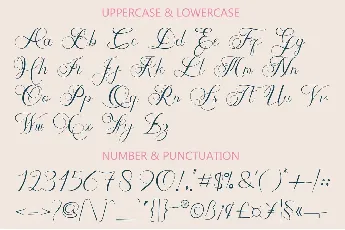 UPPERCASE & LOWERCASE
Aa Bb Cc Dd Ee Ff Gg
Hh Ii Jj Kk Ll Mm Nn
Oo Pp Qq Rr Ss Tt Uu Vv
Ww Xx Yy Zz
NUMBER & PUNCTUATION
1234567890!.:"#$%&'()*+-/:;
<=>?@[\]^_`{|}~